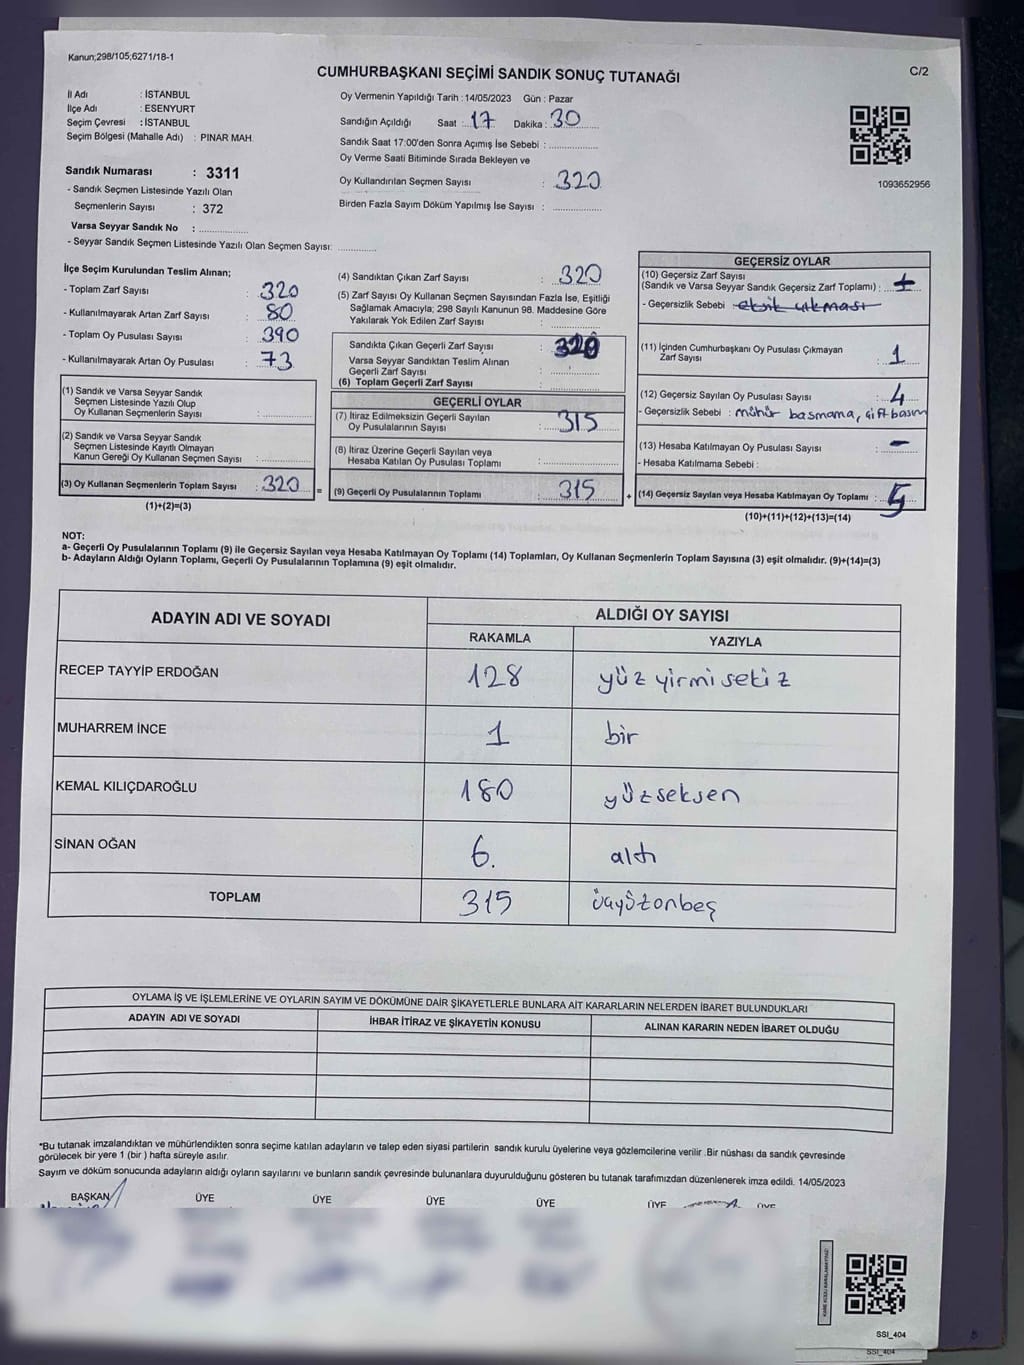 Kanun;298/105;6271/18-1
CUMHURBAŞKANI SEÇİMİ SANDIK SONUÇ TUTANAĞI
C/2
İl Adı : İSTANBUL
İlçe Adı : ESENYURT
Seçim Çevresi : İSTANBUL
Seçim Bölgesi (Mahalle Adı) : PINAR MAH.
Sandık Numarası : 3311
- Sandık Seçmen Listesinde Yazılı Olan
Seçmenlerin Sayısı : 372
Varsa Seyyar Sandık No : ..................
- Seyyar Sandık Seçmen Listesinde Yazılı Olan Seçmen Sayısı: ..............
Oy Vermenin Yapıldığı Tarih : 14/05/2023 Gün : Pazar
Sandığın Açıldığı Saat : 17 Dakika : 30
Sandık Saat 17:00'den Sonra Açımış İse Sebebi : ..................
Oy Verme Saati Bitiminde Sırada Bekleyen ve
Oy Kullandırılan Seçmen Sayısı : 320
Birden Fazla Sayım Döküm Yapılmış İse Sayısı : ..................
1093652956
İlçe Seçim Kurulundan Teslim Alınan;
- Toplam Zarf Sayısı : 320
- Kullanılmayarak Artan Zarf Sayısı : 80
- Toplam Oy Pusulası Sayısı : 390
- Kullanılmayarak Artan Oy Pusulası : 73
(1) Sandık ve Varsa Seyyar Sandık
Seçmen Listesinde Yazılı Olup
Oy Kullanan Seçmenlerin Sayısı : ..................
(2) Sandık ve Varsa Seyyar Sandık
Seçmen Listesinde Kayıtlı Olmayan
Kanun Gereği Oy Kullanan Seçmen Sayısı : ..................
(3) Oy Kullanan Seçmenlerin Toplam Sayısı : 320 =
(1)+(2)=(3)
(4) Sandıktan Çıkan Zarf Sayısı : 320
(5) Zarf Sayısı Oy Kullanan Seçmen Sayısından Fazla İse, Eşitliği
Sağlamak Amacıyla; 298 Sayılı Kanunun 98. Maddesine Göre
Yakılarak Yok Edilen Zarf Sayısı : ..................
Sandıkta Çıkan Geçerli Zarf Sayısı : 320
Varsa Seyyar Sandıktan Teslim Alınan
Geçerli Zarf Sayısı : ..................
(6) Toplam Geçerli Zarf Sayısı : ..................
GEÇERLİ OYLAR
(7) İtiraz Edilmeksizin Geçerli Sayılan
Oy Pusulalarının Sayısı : 315
(8) İtiraz Üzerine Geçerli Sayılan veya
Hesaba Katılan Oy Pusulası Toplamı : ..................
(9) Geçerli Oy Pusulalarının Toplamı : 315 +
GEÇERSİZ OYLAR
(10) Geçersiz Zarf Sayısı
(Sandık ve Varsa Seyyar Sandık Geçersiz Zarf Toplamı) :
- Geçersizlik Sebebi : eksik çıkması
(11) İçinden Cumhurbaşkanı Oy Pusulası Çıkmayan
Zarf Sayısı : 1
(12) Geçersiz Sayılan Oy Pusulası Sayısı : 4
- Geçersizlik Sebebi : mühür basmama, çift basım
(13) Hesaba Katılmayan Oy Pusulası Sayısı : -
- Hesaba Katılmama Sebebi :
(14) Geçersiz Sayılan veya Hesaba Katılmayan Oy Toplamı : 5
(10)+(11)+(12)+(13)=(14)
NOT:
a- Geçerli Oy Pusulalarının Toplamı (9) ile Geçersiz Sayılan veya Hesaba Katılmayan Oy Toplamı (14) Toplamları, Oy Kullanan Seçmenlerin Toplam Sayısına (3) eşit olmalıdır. (9)+(14)=(3)
b- Adayların Aldığı Oyların Toplamı, Geçerli Oy Pusulalarının Toplamına (9) eşit olmalıdır.
ADAYIN ADI VE SOYADI ALDIĞI OY SAYISI
RAKAMLA YAZIYLA
RECEP TAYYİP ERDOĞAN 128 yüz yirmi sekiz
MUHARREM İNCE 1 bir
KEMAL KILIÇDAROĞLU 180 yüzseksen
SİNAN OĞAN 6. altı
TOPLAM 315 üçyüzonbeş
OYLAMA İŞ VE İŞLEMLERİNE VE OYLARIN SAYIM VE DÖKÜMÜNE DAİR ŞİKAYETLERLE BUNLARA AİT KARARLARIN NELERDEN İBARET BULUNDUKLARI
ADAYIN ADI VE SOYADI İHBAR İTİRAZ VE ŞİKAYETİN KONUSU ALINAN KARARIN NEDEN İBARET OLDUĞU
*Bu tutanak imzalandıktan ve mühürlendikten sonra seçime katılan adayların ve talep eden siyasi partilerin sandık kurulu üyelerine veya gözlemcilerine verilir .Bir nüshası da sandık çevresinde
görülecek bir yere 1 (bir ) hafta süreyle asılır.
Sayım ve döküm sonucunda adayların aldığı oyların sayılarını ve bunların sandık çevresinde bulunanlara duyurulduğunu gösteren bu tutanak tarafımızdan düzenlenerek imza edildi. 14/05/2023
BAŞKAN ÜYE ÜYE ÜYE ÜYE ÜYE ÜYE
SSI_404
SSI_404